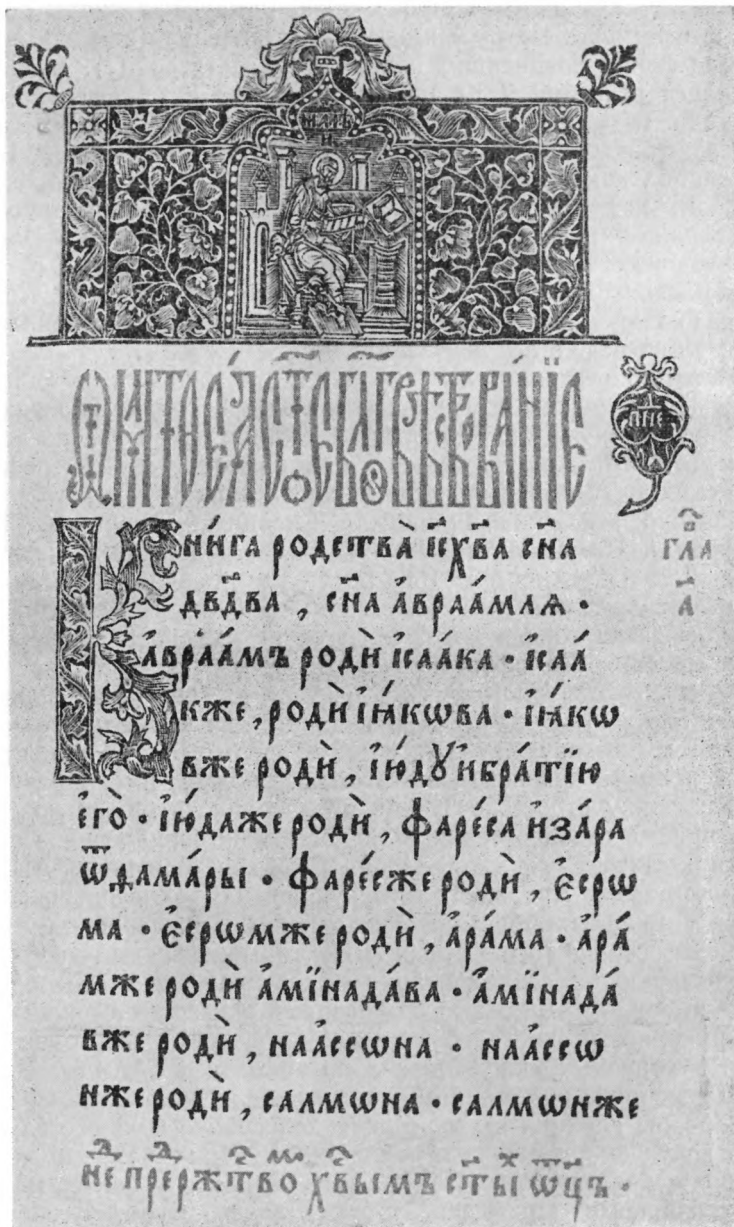 МАТѲЕ
И
Ѿ МАТѲЕ́Я СТ҃Ѻ Е҆ѴА́ГГ҃ БЛАГОВѢСТВОВА́НЇЕ
ПНЕ
Кни́га родства̀ і҆с҃хв҃а сн҃а
дв҃два , сн҃а а҆враа́млѧ ·
а҆враа́мъ родѝ і҆саа́ка · і҆саа́
кже , родѝ і҆а́кѡва · і҆а́кѡ
вже родѝ , і҆ю́дꙋ ибра́тїю
є҆го̀ · і҆ю́даже родѝ , фаре́са изара
ѿѳама́ры · фаре́сже родѝ , є҆срѡ
ма · є҆срѡмже родѝ , а҆ра́ма · а҆ра́
мже родѝ а҆мїнада́ва · а҆мїнада́
вже родѝ , наа́ссѡна · наа́ссѡ
нже родѝ , салмѡна · салмѡнже
гла҃
а҃
не прерж҃тво хв҃ымъ ст҃ы ѡц҃ъ ·